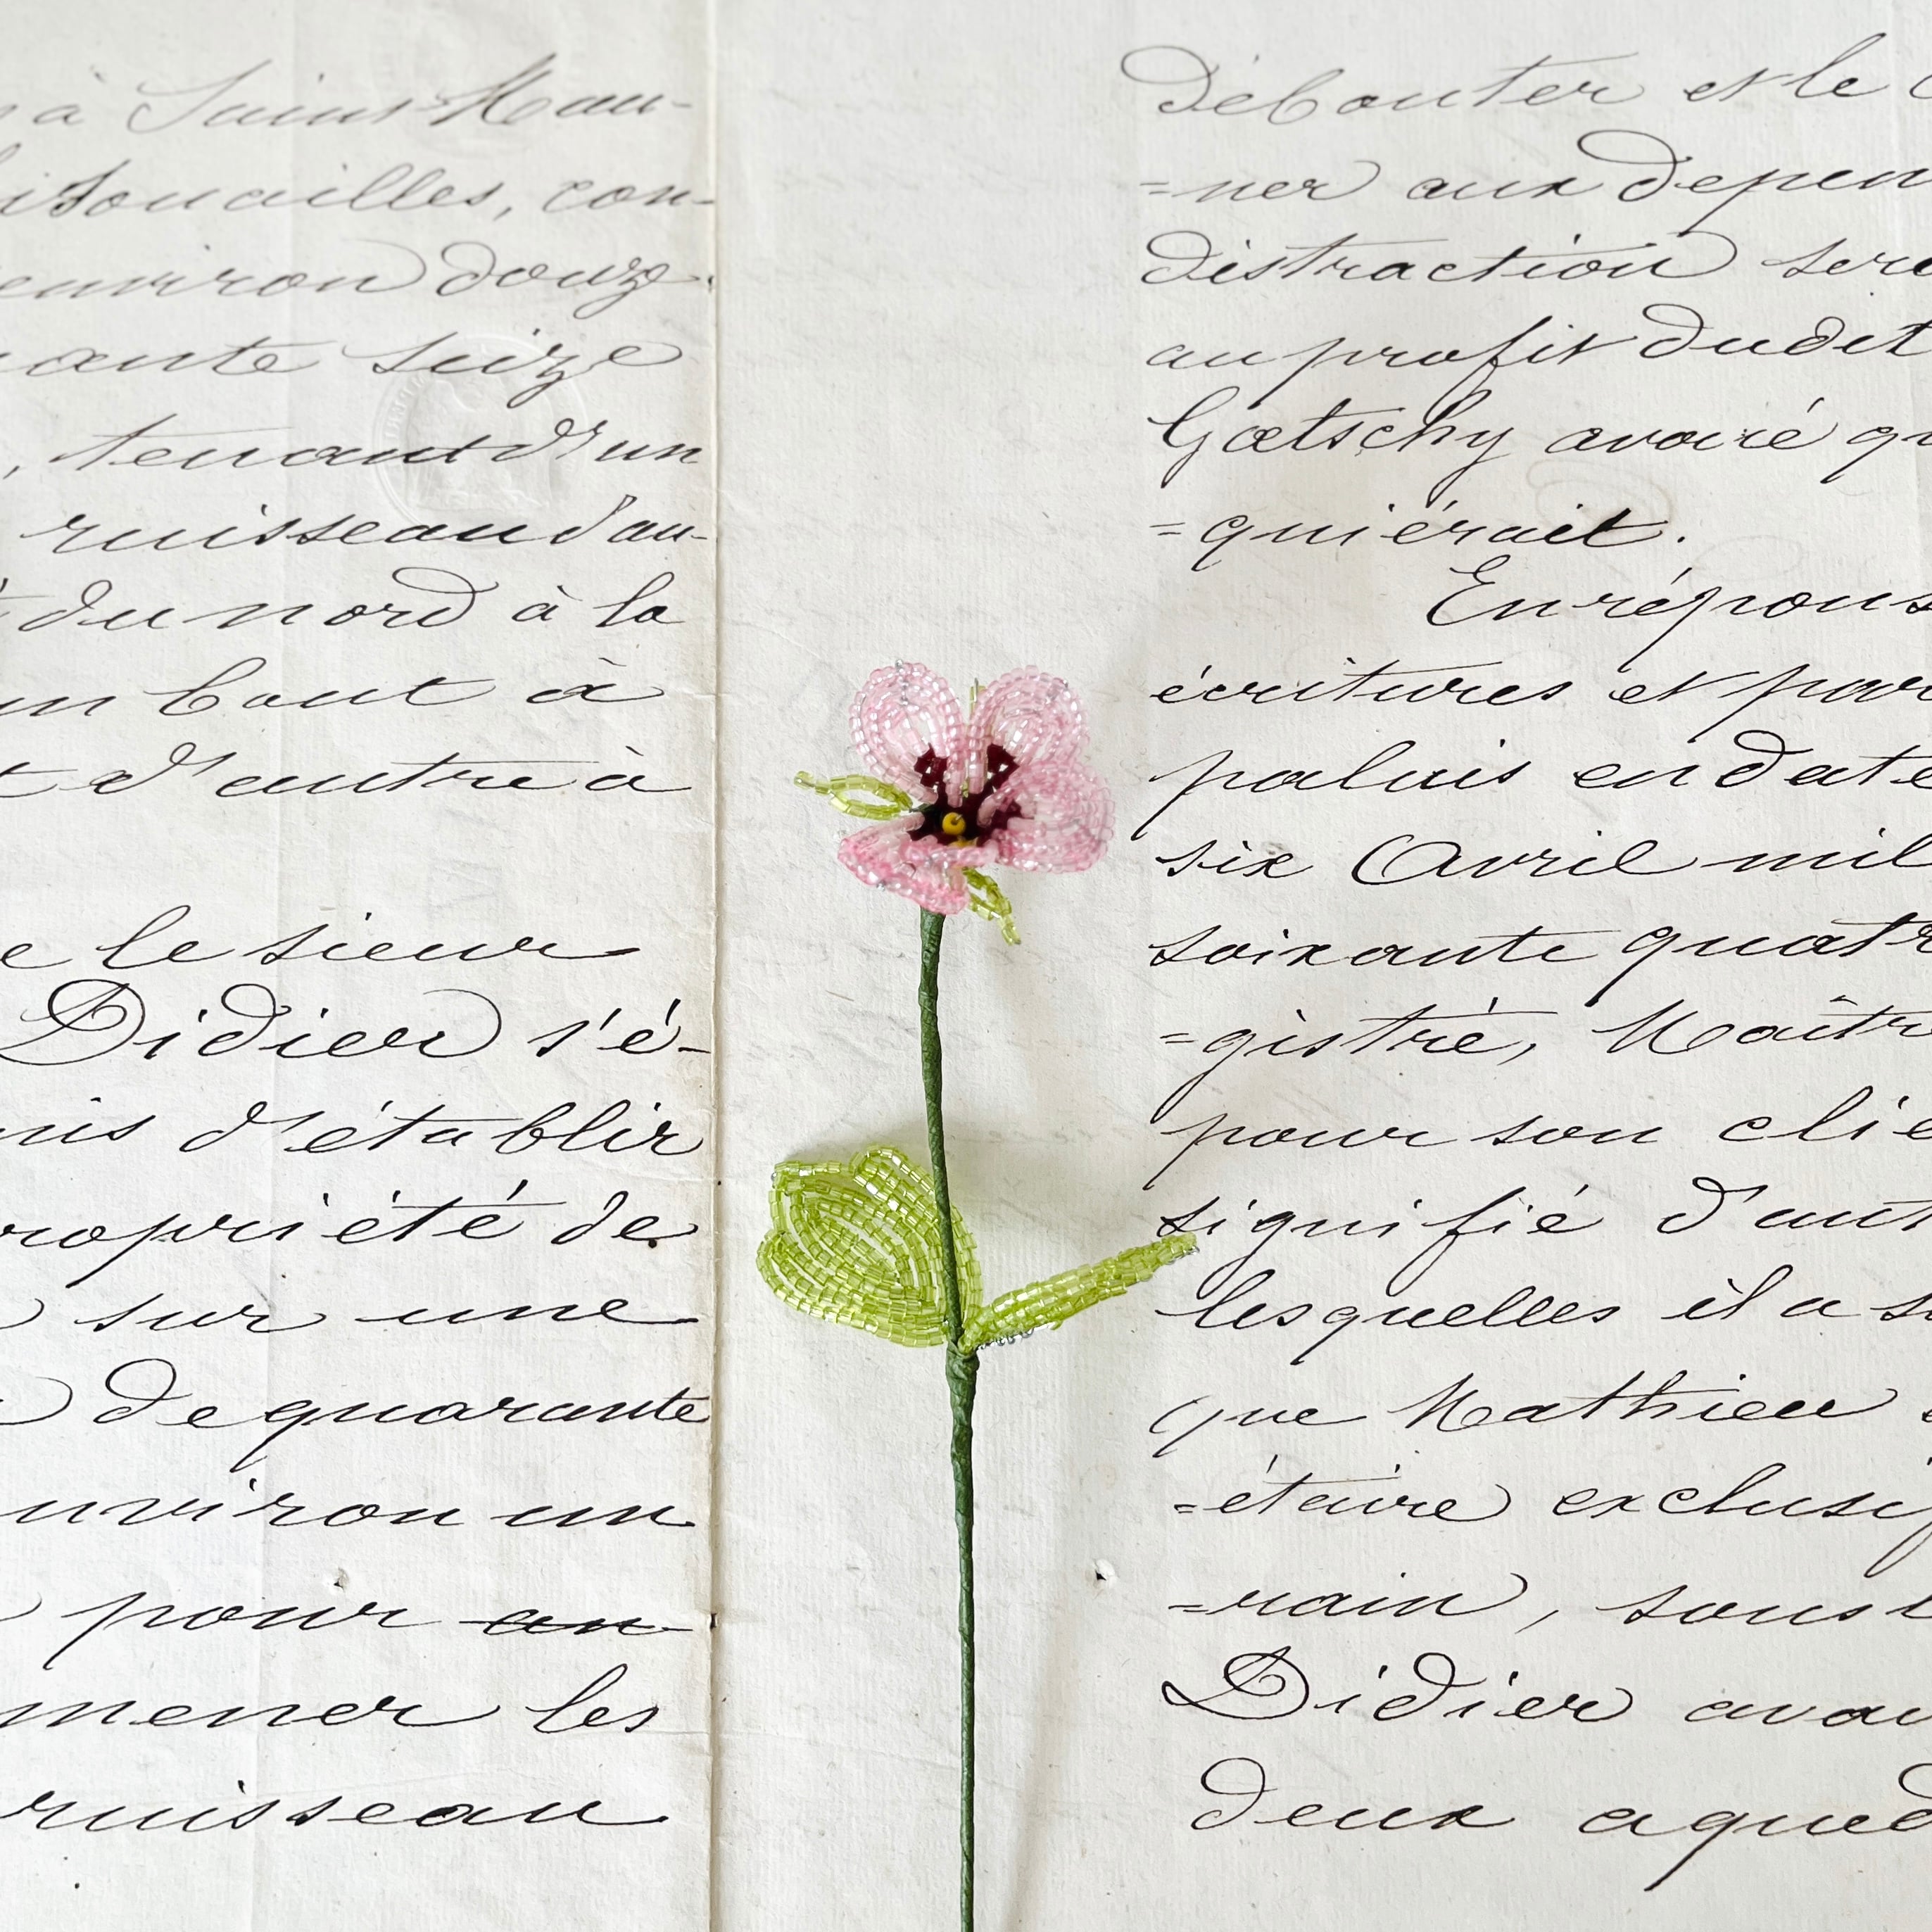 à Saint-Mau-
, con-
environ douze
ante seize
, tenant d'un
ruisseau d'au-
du nord à la
un bout à
t d'autre à
e le sieur
Didier s'é-
mis d'établir
ropriété de
sur une
de quarante
environ un
pour an
mener les
ruisseau
débouter et le
=ner aux dépen
distraction sera
au profit dudit
Gœtschy avoué qu
=quiérait.
En répons
écritures et par
palais en date
six Avril mil
soixante quatr
=gistré, Maîtr
pour son clie
signifié d'aut
lesquelles il a s
que Mathieu
=étaire exclusif
=rain, sous
Didier avai
deux aqued